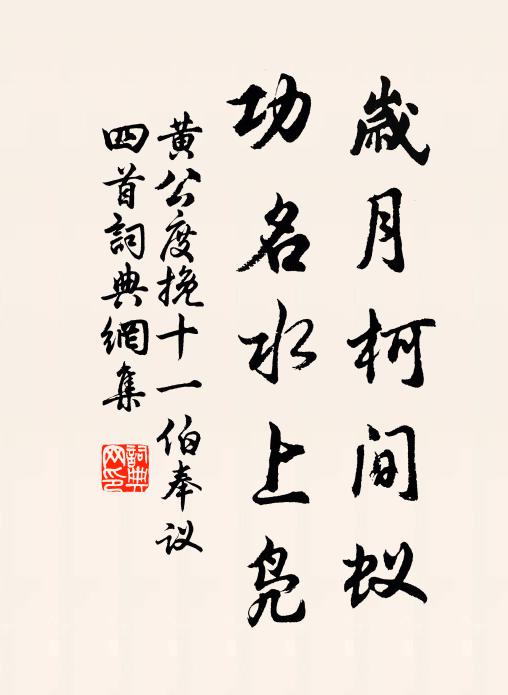 歲月柯间蚁
功名水上凫
黄公度挽十一伯奉议
四首詞典網集
詞典网印